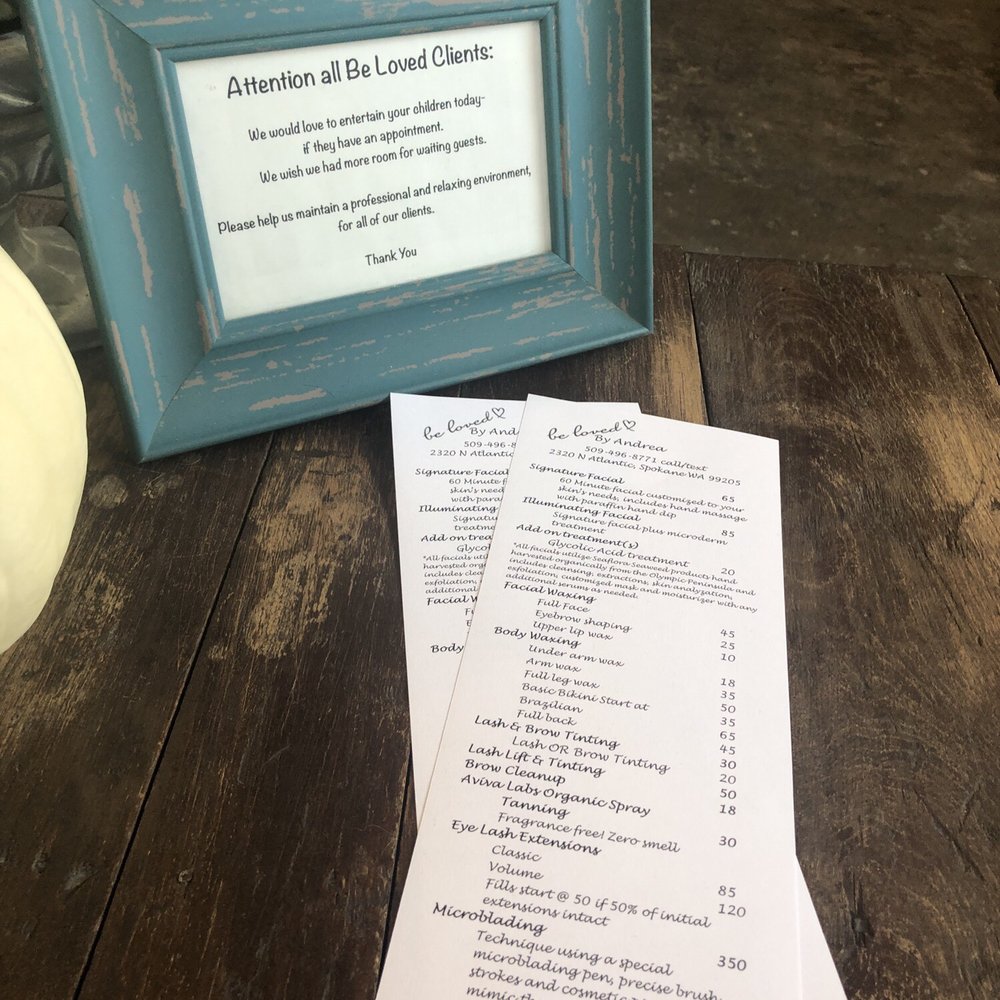 Attention all Be Loved Clients:
We would love to entertain your children today-
if they have an appointment.
We wish we had more room for waiting guests.
Please help us maintain a professional and relaxing environment,
for all of our clients.
Thank You
be loved
By And
509-496-8
2320 N Atlantic
Signature Facial
60 Minute f
skin's need
with paraf
Illuminating
Signatu
treatme
Add on trea
Glycol
*All facials uti
harvested org
includes clea
exfoliation,
additional
Facial W
Body
be loved
By Andrea
509-496-8771 call/text
2320 N Atlantic, Spokane WA 99205
Signature Facial 65
60 Minute facial customized to your
skin's needs, includes hand massage
with paraffin hand dip
Illuminating Facial 85
Signature facial plus microderm
treatment
Add on treatment(s)
Glycolic Acid treatment 20
*All facials utilize Seaflora Seaweed products hand
harvested organically from the Olympic Peninsula and
includes cleansing, extractions, skin analyzation,
exfoliation, customized mask and moisturizer with any
additional serums as needed.
Facial Waxing
Full Face 45
Eyebrow shaping 25
Upper lip wax 10
Body Waxing
Under arm wax 18
Arm wax 35
Full leg wax 50
Basic Bikini Start at 35
Brazilian 65
Full back 45
Lash & Brow Tinting 30
Lash OR Brow Tinting 20
Lash Lift & Tinting 50
Brow Cleanup 18
Aviva Labs Organic Spray
Tanning 30
Fragrance free! Zero smell
Eye Lash Extensions
Classic 85
Volume 120
Fills start @ 50 if 50% of initial
extensions intact
Microblading 350
Technique using a special
microblading pen, precise brush
strokes and cosmetic
mimic th